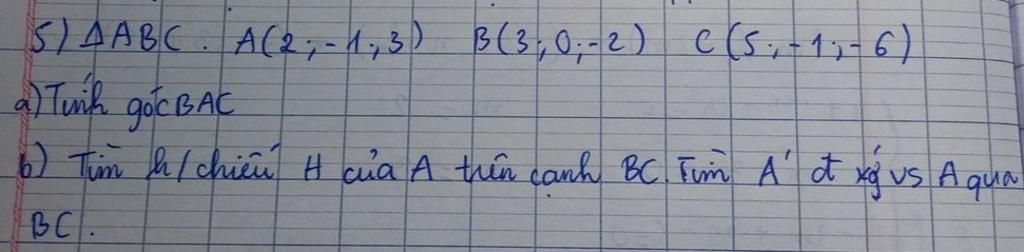 5) ΔABC. A(2;-1;3) B(3;0;-2) C(5;-1;-6)
a) Tính góc BAC
b) Tìm h/chiếu H của A trên cạnh BC. Tìm A' đ xứg vs A qua
BC.